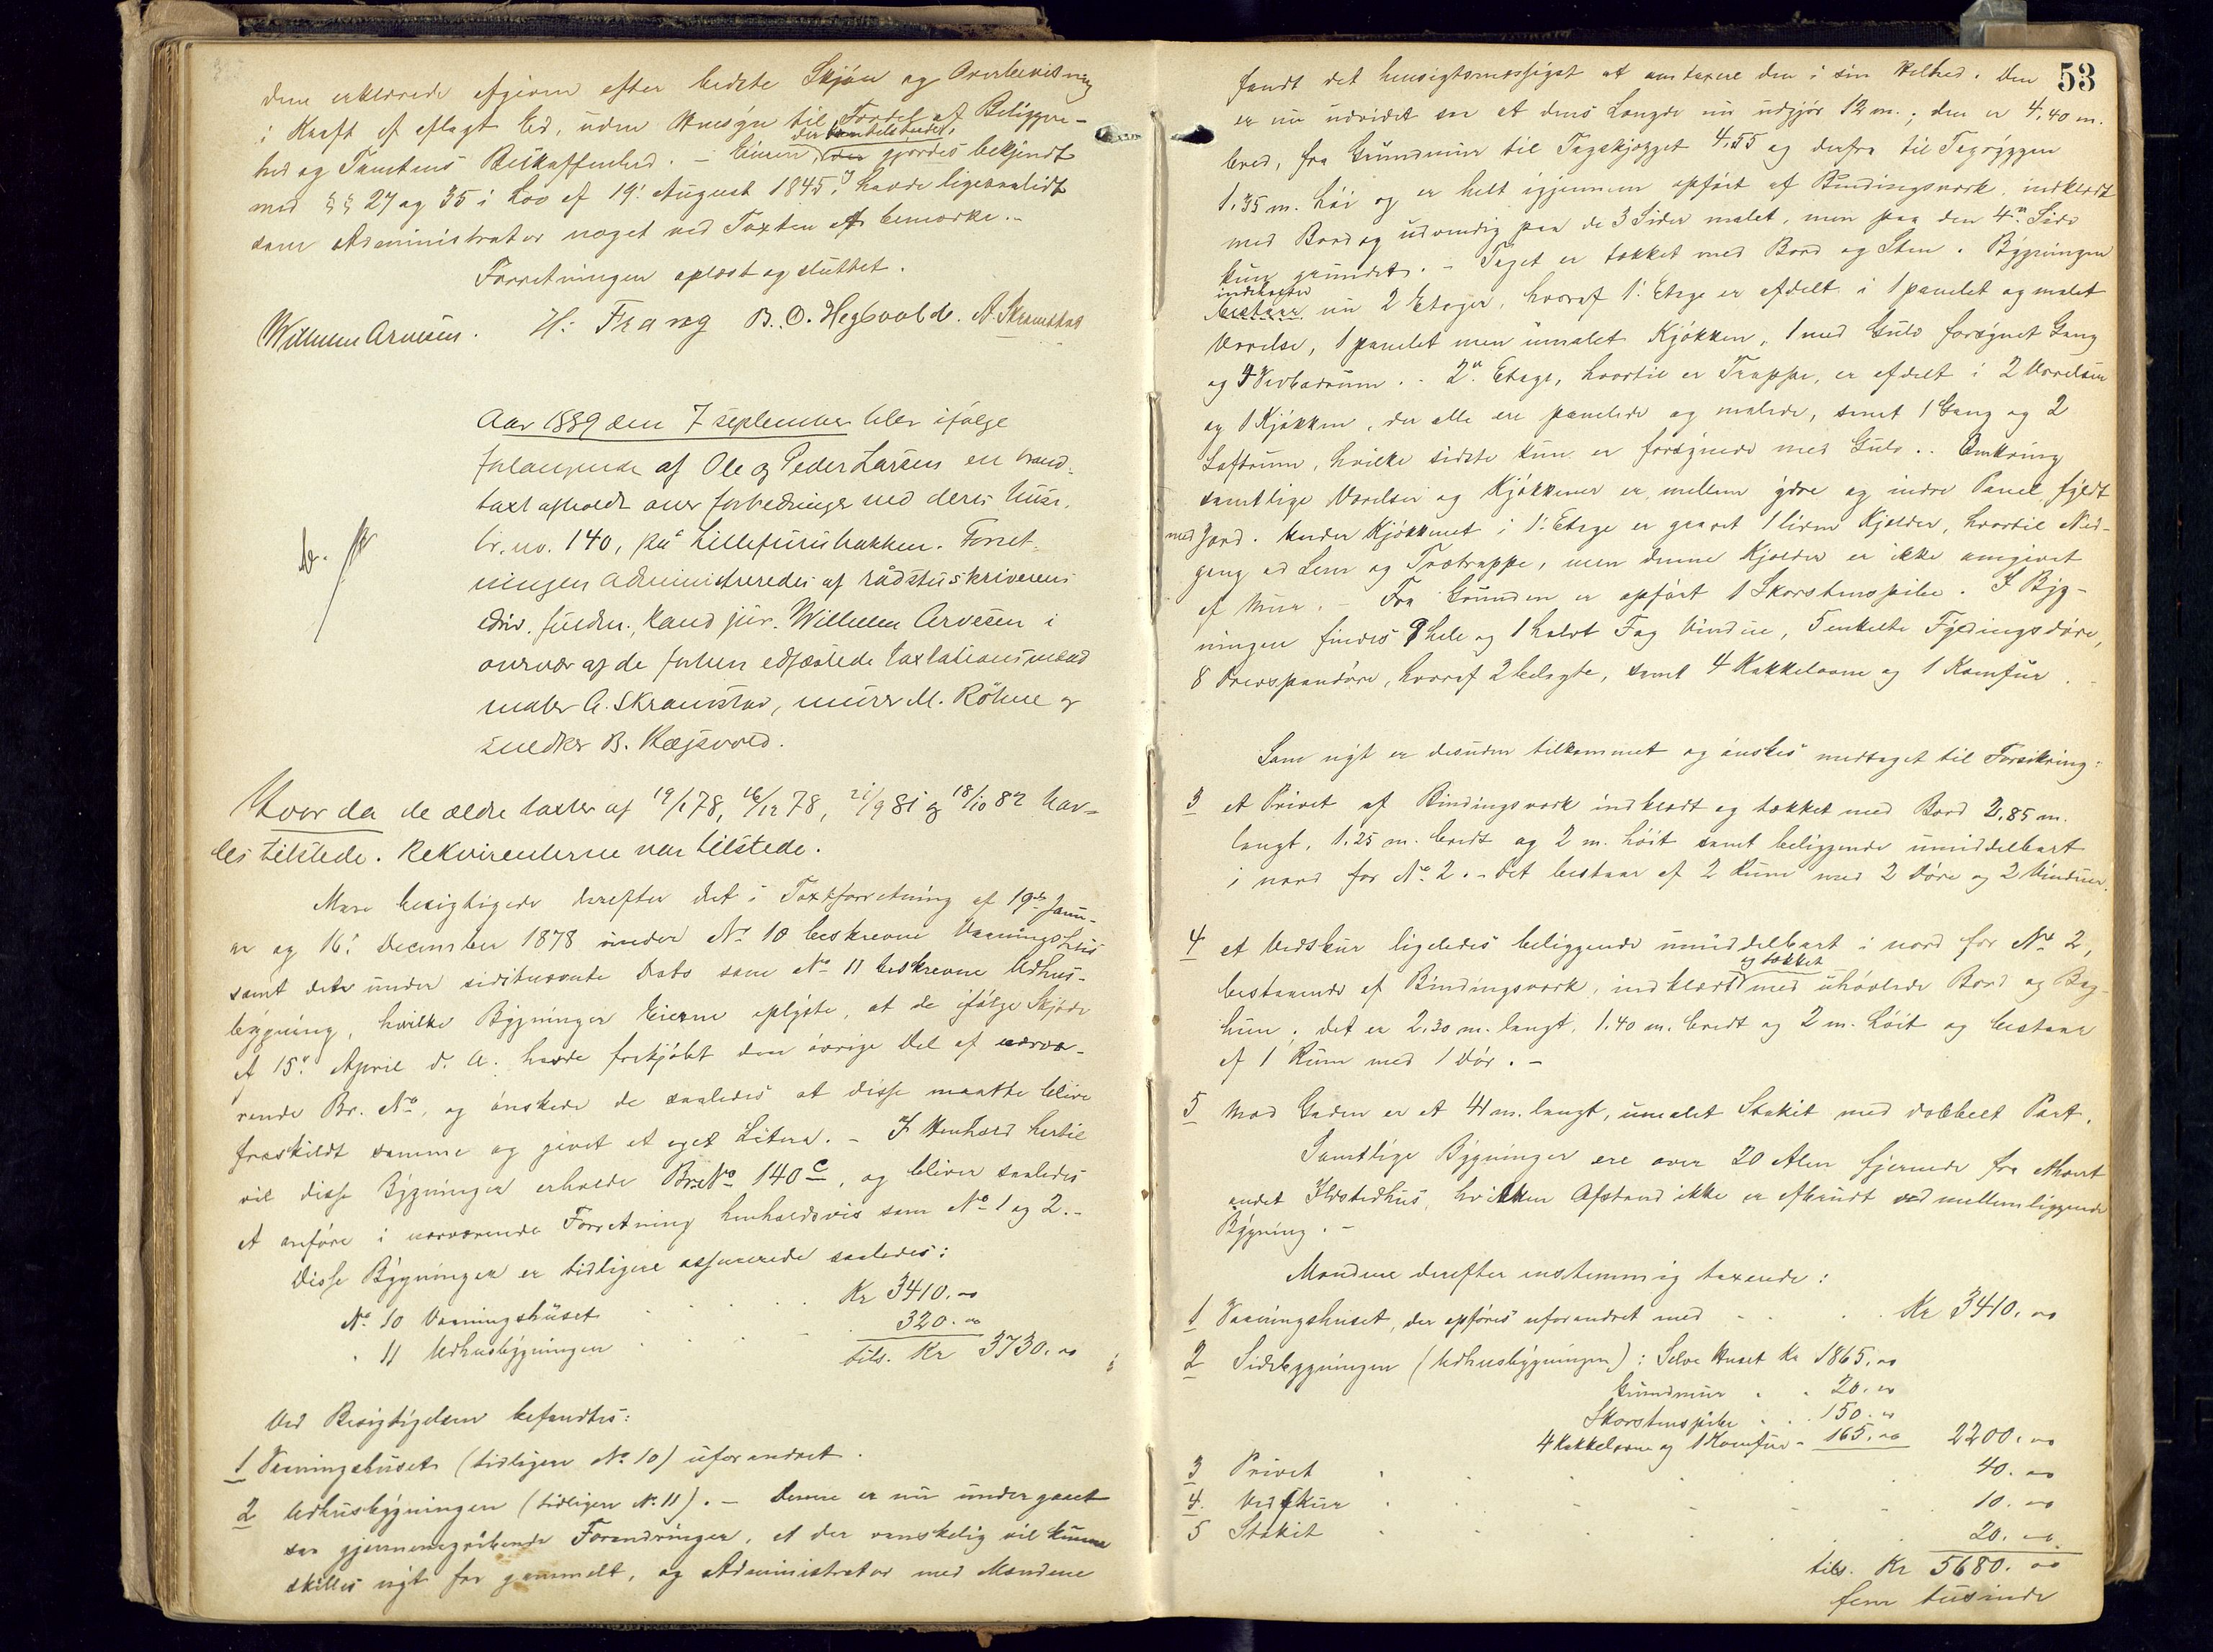 dene erklærede afgiven efter bedste Skjøn og Overbevisning
i Kraft af aflagt Ed, uden Hensyn til Fordel af Beliggen-
hed og Tomtens Beskaffenhed. – Eieren, der var tilstede, gjordes bekjendt
med §§ 27 og 35 i Lov af 19. August 1845, havde ligesaalidt
som Administrator noget ved Taxten at bemærke. –
Forretningen oplæst og sluttet.
Wilhelm Arvesen. H. Frang B. O. Hegsvolde. A. Skramstad
Aar 1889 den 7 september blev ifølge
forlangende af Ole og Peder Larsen en brand-
taxt afholdt over forbedringer ved deres huse,
br. no. 140, på Lillefurubakken. Forret-
ningen administreredes af rådstuskriverens
edsv. fuldm., kand jur. Wilhelm Arvesen i
overvær af de forhen edfæstede taxtationsmænd
maler A. Skramstad, murer M. Röhne og
snedker B. Hægsvold.
Hvor da de ældre taxter af 19/1 78, 16/12 78, 21/9 81 og 18/10 82 hav-
des tilstede. Rekvirenterne var tilstede.
Man besigtigede derefter det i Taxtforretning af 19de Janu-
ar og 16. December 1878 under No 10 beskrevne Vaaningshus
samt det under sidstnævnte Dato som No 11 beskrevne Udhus-
bygning, hvilke Bygninger Eierne oplyste, at de ifølge Skjøde
af 15. April d. A. havde frakjøbt den øvrige Del af nærvæ-
rende Br. No, og ønskede de saaledes at disse maatte blive
fraskildt samme og givet et eget Litera. – I Henhold hertil
vil disse Bygninger erholde Br. No 140 c, og bliver saaledes
at anføre i nærværende Forretning henholdsvis som No 1 og 2. –
Disse Bygninger er tidligere assurerede saaledes:
No 10 Vaaningshuset Kr 3410.00
" 11 Udhusbygningen 320.00
tils. Kr 3730.00
Ved Besigtigelsen befandtes:
1 Vaaningshuset (tidligere No 10) uforandret.
2 Udhusbygningen (tidligere No 11). – Denne er nu undergaaet
saa gjennemgribende Forandringer, at der vanskelig vil kunne
skilles nyt fra gammelt, og Administrator med Mændene
53
fandt det hensigtsmæssigst at omtaxere den i sin Helhed. Den
er nu udvidet saa at dens Længde nu udgjør 12 m.; den er 4,40 m.
bred, fra Grundmur til Tagskjægget 4,55 og derfra til Tagryggen
1,35 m. høi og er helt igjennem opført af Bindingsværk, indklædt
med Bord og udvendig paa de 3 Sider malet, men paa den 4de Side
kun grundet. – Taget er tækket med Bord og Sten. Bygningen
indeholder
bestaar nu 2 Etager, hvoraf 1. Etage er afdelt i 1 panelet og malet
Værelse, 1 panelet men umalet Kjøkken, 1 med Gulv forsynet Gang
og 3 Vedbodrum. – 2. Etage, hvortil er Trappe, er afdelt i 2 Værelser
og 1 Kjøkken, der alle ere panelede og malede, samt 1 Gang og 2
Loftsrum, hvilke sidste kun er forsynede med Gulv. Omkring
samtlige Værelser og Kjøkkener er mellem ydre og indre Panel fyldt
med Jord. Under Kjøkkenet i 1. Etage er gravet 1 liden Kjælder, hvortil Ned-
gang ad Lem og Trætrappe, men denne Kjælder er ikke omgivet
af Mur. – Fra Grunden er opført 1 Skorstenspibe. I Byg-
ningen findes 9 hele og 1 halvt Fag Vindue, 5 enkelte Fyldingsdøre,
8 Presspandøre, hvoraf 2 belagte, samt 4 Kakkelovne og 1 Komfur.
Som nyt er desuden tilkommet og ønskes medtaget til Forsikring:
3 et Privet af Bindingsværk indklædt og tækket med Bord 2,85 m.
langt, 1,25 m. bredt og 2 m. høit samt beliggende umiddelbart
i nord for No 2. – Det bestaar af 2 Rum med 2 Døre og 2 Vinduer.
4 et Vedskur ligeledes beliggende umiddelbart i nord for No 2,
bestaaende af Bindingsværk, indklædt og tækket med uhøvlede Bord og Bag-
hun; det er 2,30 m. langt, 1,40 m. bredt og 2 m. høit og bestaar
af 1 Rum med 1 Dør. –
5 Mod Gaden er et 41 m. langt, umalet Stakit med dobbelt Port.
Samtlige Bygninger ere over 20 Alen fjernede fra ethvert
andet Ildstedhus, hvilken Afstand ikke er afbrudt ved mellemliggende
Bygning. –
Mændene derefter enstemmig taxerede:
1 Vaaningshuset, der opføres uforandret med Kr 3410.00
2 Sidebygningen (Udhusbygningen): Selve Huset Kr 1865.00
Grundmur " 20.00
Skorstenspibe " 150.00
4 Kakkelovne og 1 Komfur " 165.00 2200.00
3 Privet 40.00
4. Vedskur 10.00
5 Stakit 20.00
tils. Kr 5680.00
fem tusinde